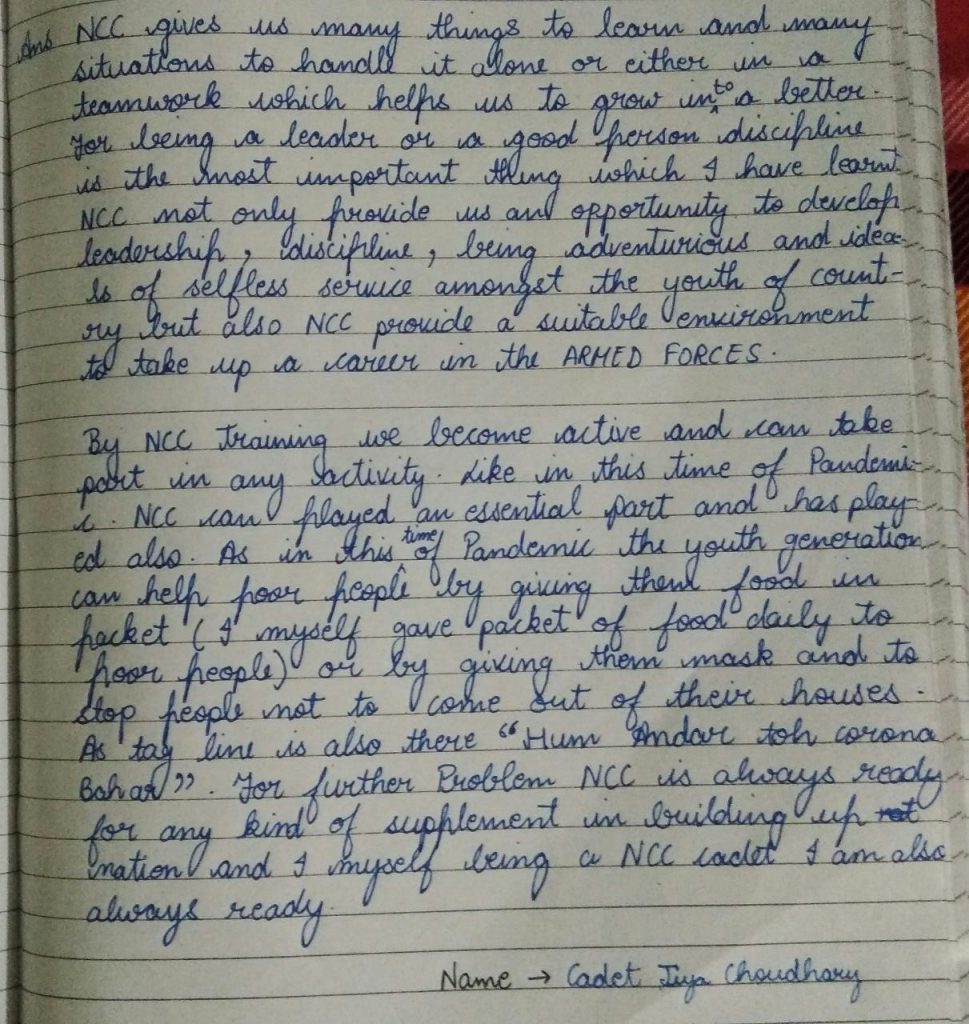 Ans NCC gives us many things to learn and many
situations to handle it alone or either in a
teamwork which helps us to grow into a better.
For being a leader or a good person discipline
is the most important thing which I have learnt.
NCC not only provide us and opportunity to develop
leadership, discipline, being adventurious and idea-
ls of selfless service amongst the youth of count-
ry but also NCC provide a suitable environment
to take up a career in the ARMED FORCES.
By NCC Training we become active and can take
part in any activity. Like in this time of Pandemi-
c. NCC can played an essential part and has play-
ed also. As in this time of Pandemic the youth generation
can help poor people by giving them food in
packet (I myself gave packet of food daily to
poor people) or by giving them mask and to
stop people not to come out of their houses.
As tag line is also there "Hum Andar toh corona
Bahar". For further Problem NCC is always ready
for any kind of supplement in building up
nation and I myself being a NCC cadet I am also
always ready.
Name → Cadet Jiya Choudhary